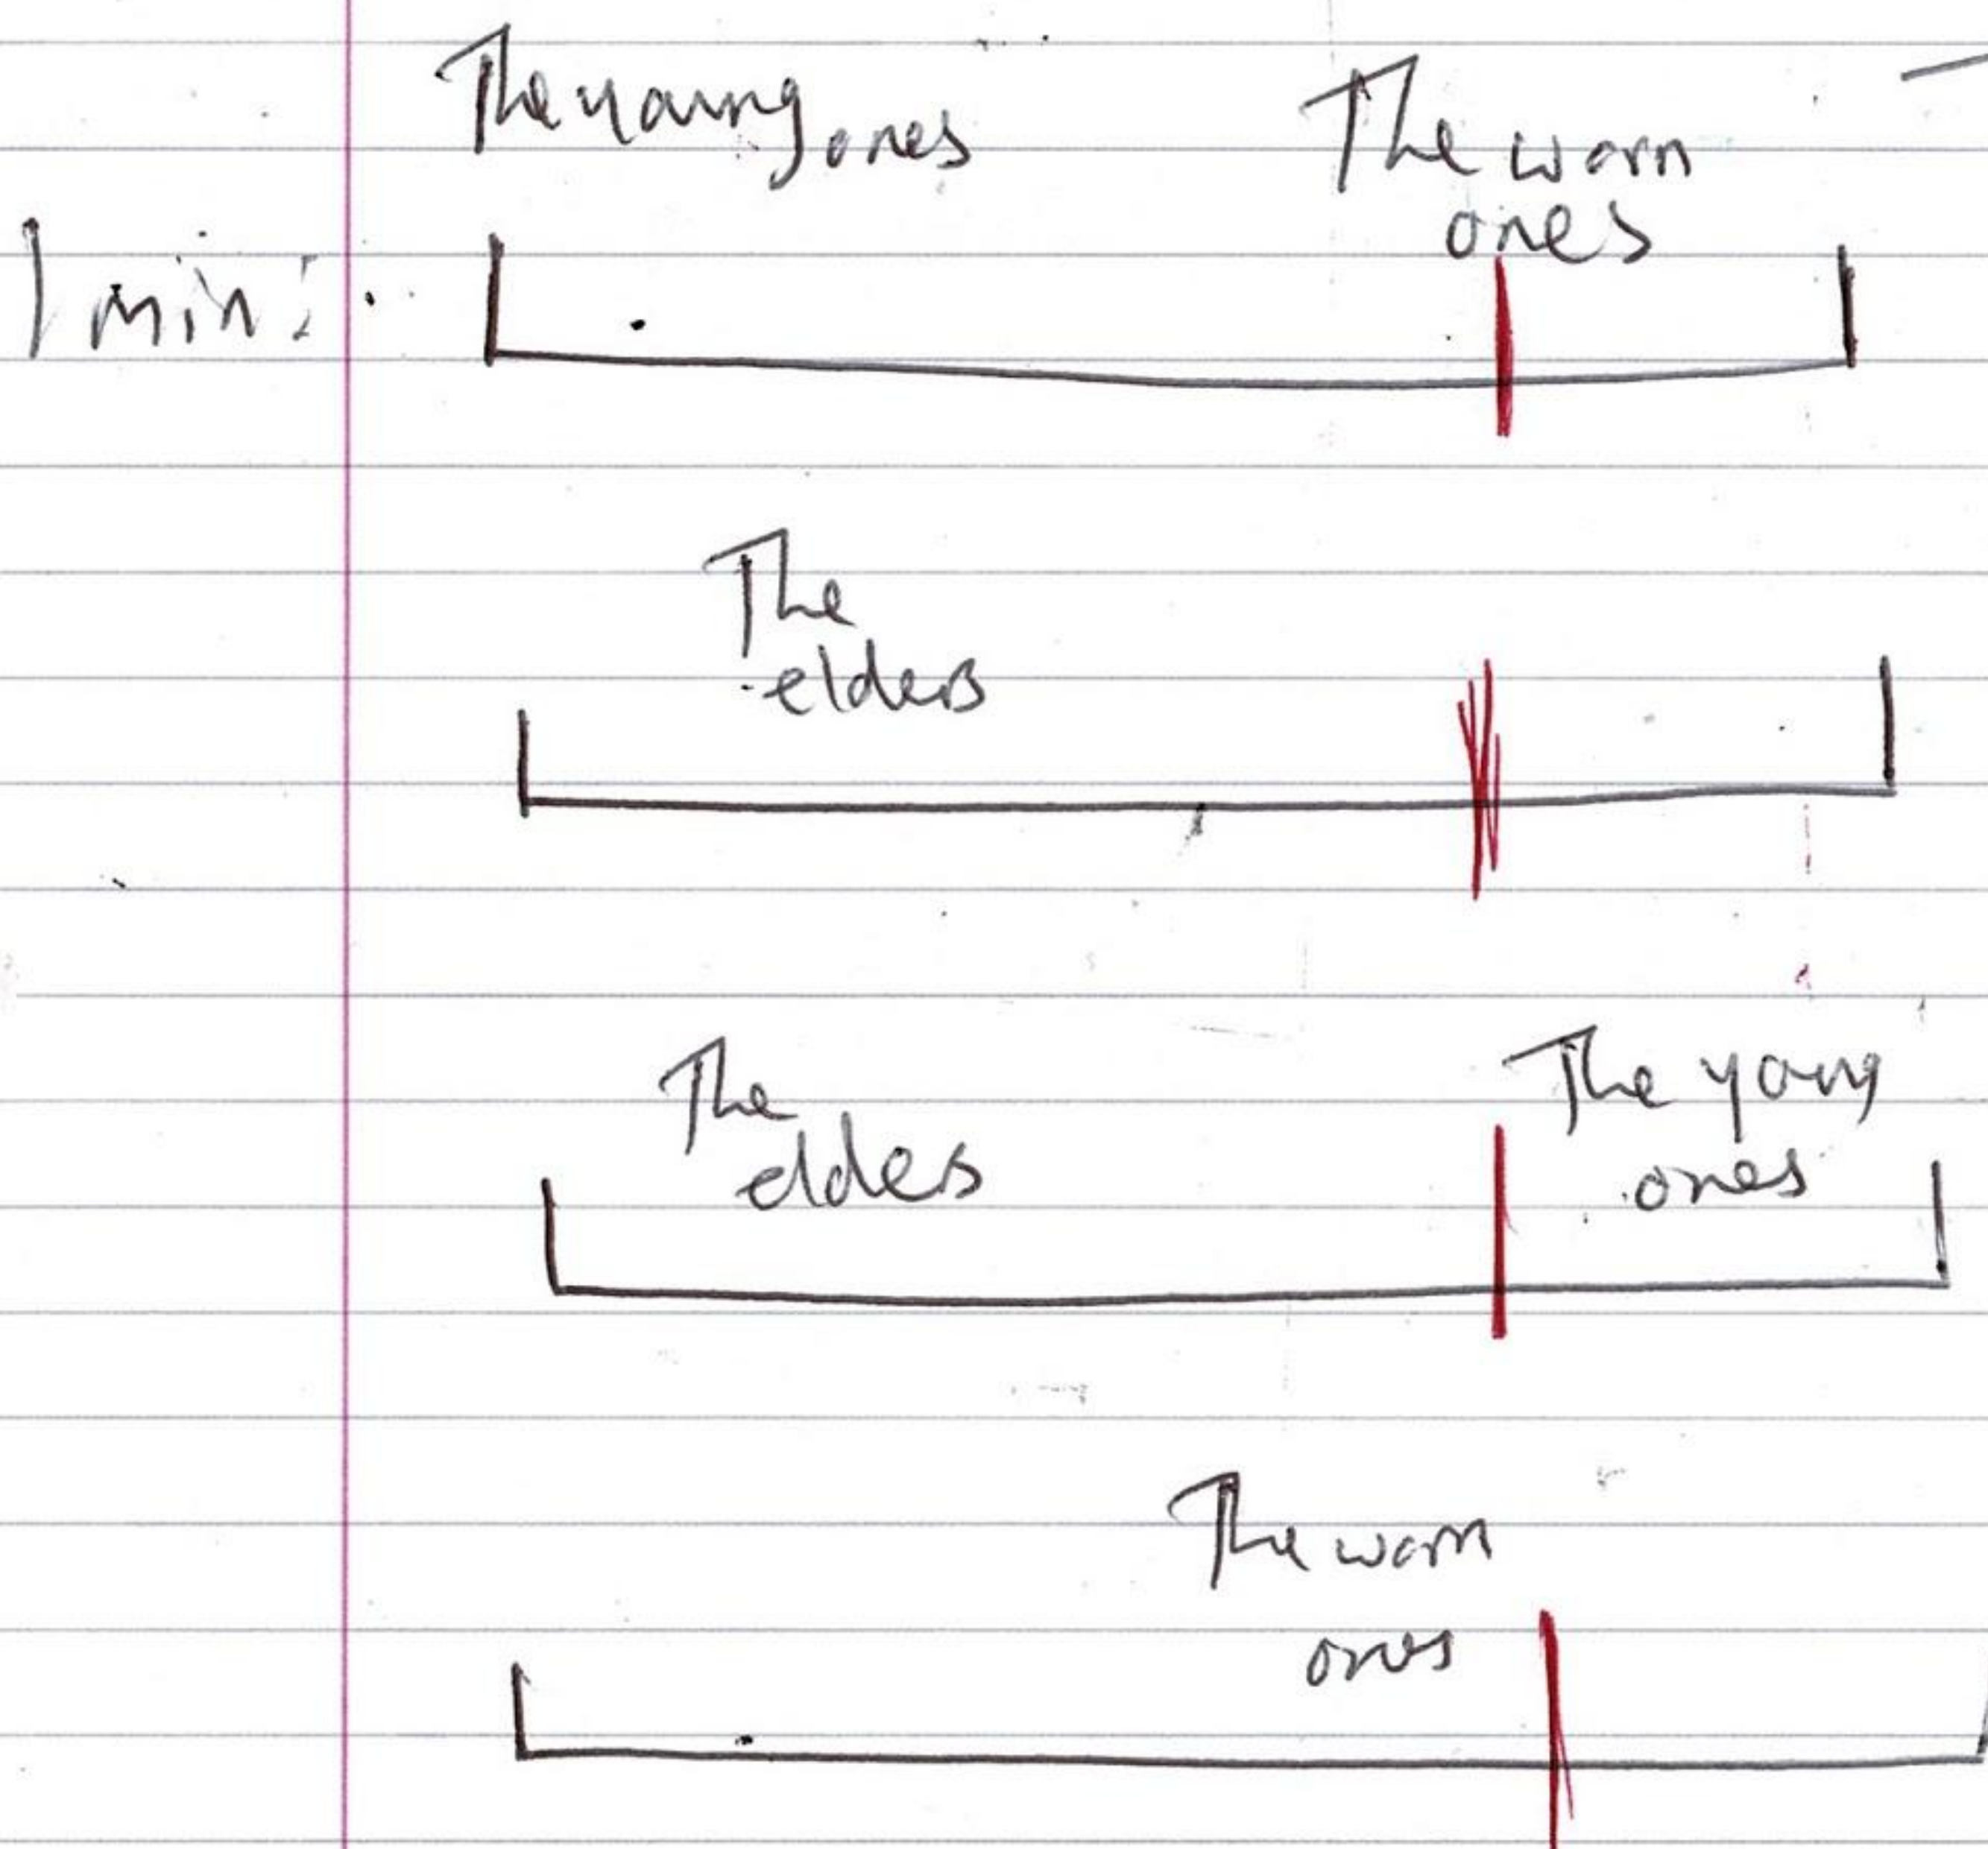 The young ones
The worn
ones
1 min:
The
elders
The
elders
The young
ones
The worn
ones